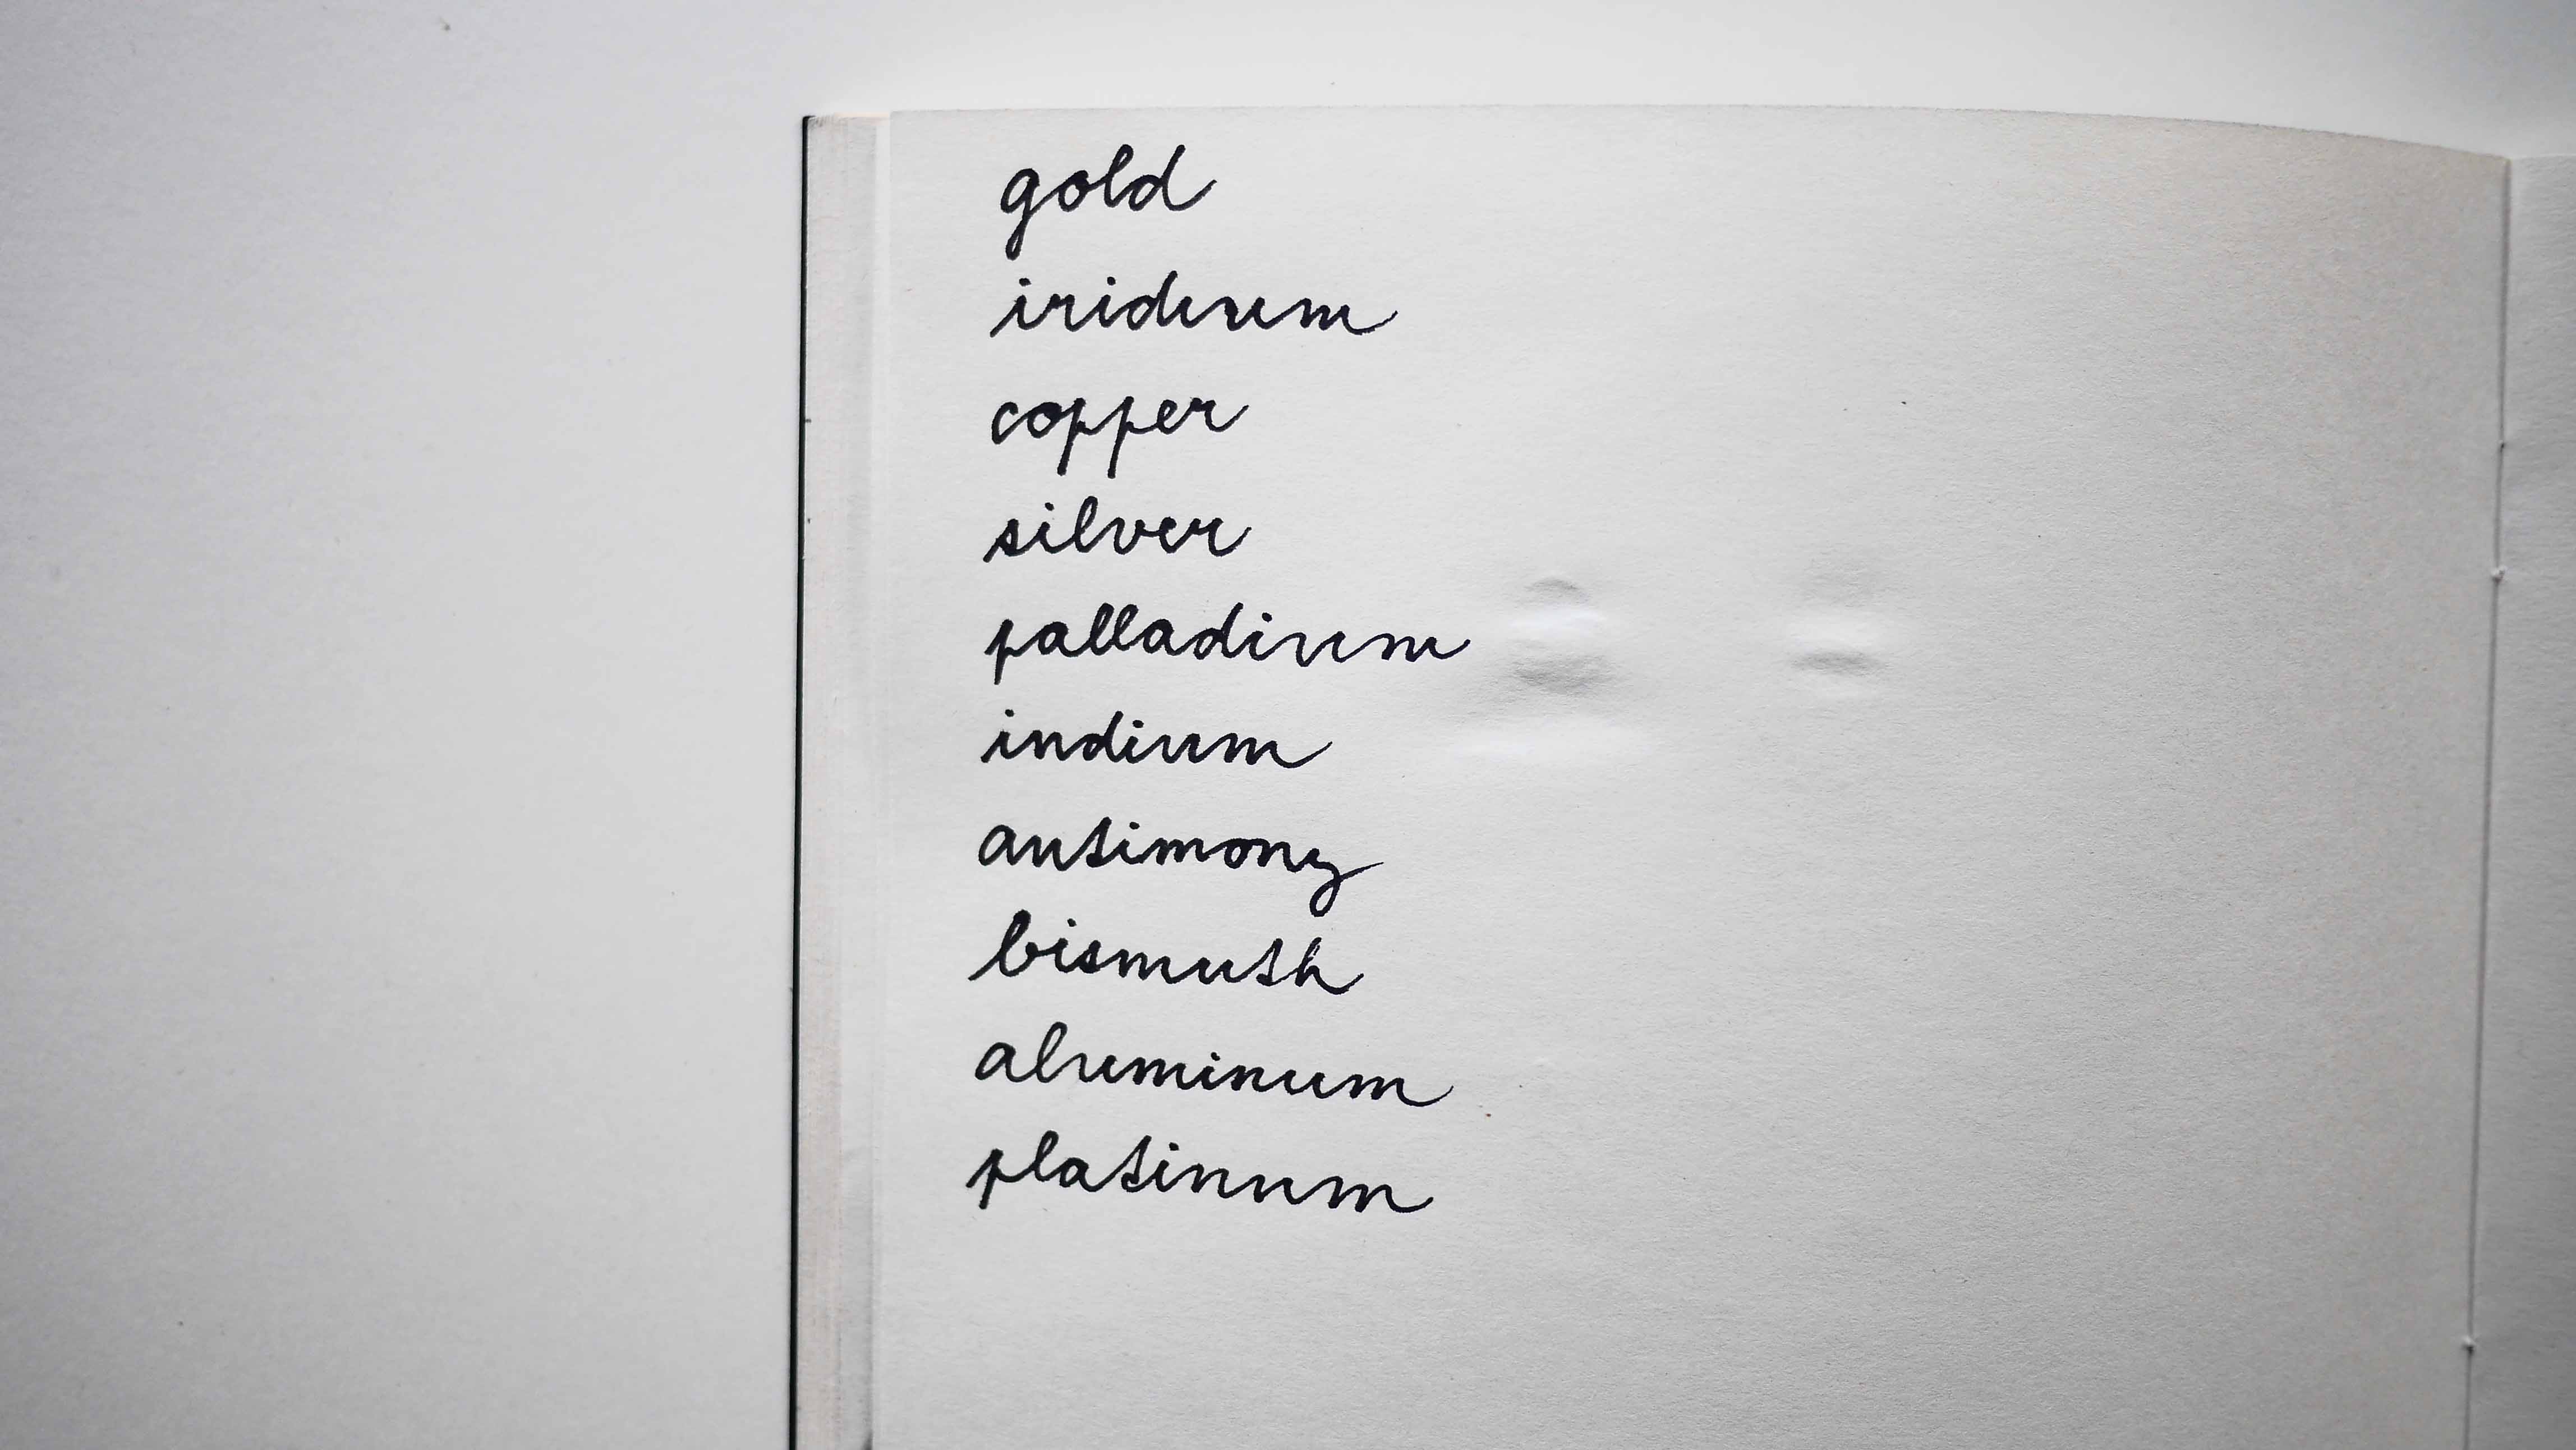 gold
iridium
copper
silver
palladium
indium
antimony
bismuth
aluminum
platinum